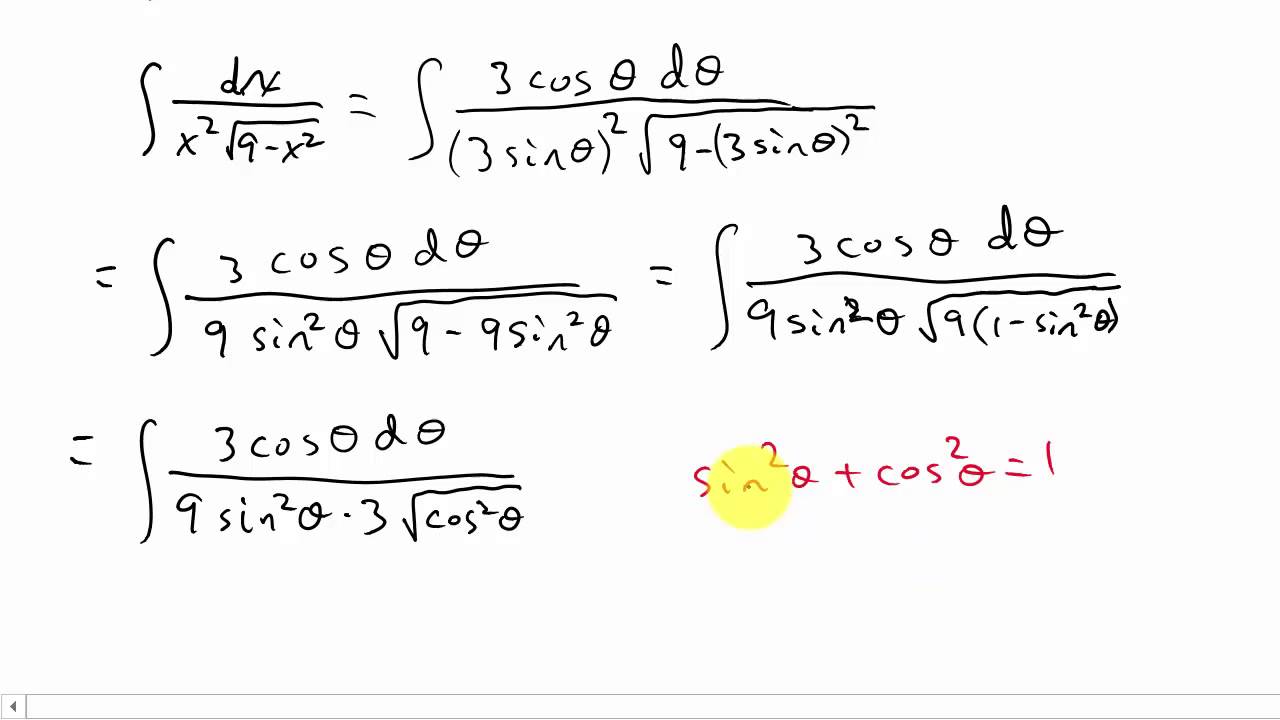 ∫ dx / (x² √(9-x²)) = ∫ 3 cos θ dθ / ((3 sin θ)² √(9-(3 sin θ)²))
= ∫ 3 cos θ dθ / (9 sin² θ √(9 - 9 sin² θ)) = ∫ 3 cos θ dθ / (9 sin² θ √(9(1-sin² θ)))
= ∫ 3 cos θ dθ / (9 sin² θ · 3 √(cos² θ))
sin² θ + cos² θ = 1